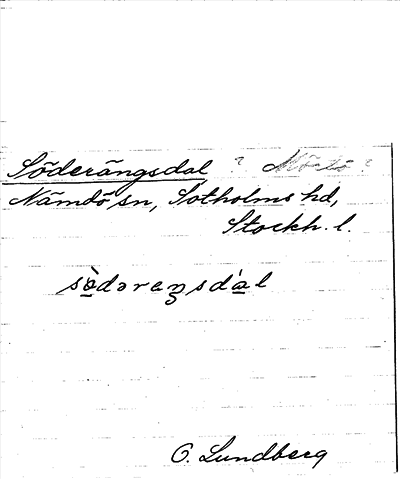 Söderängsdal ? Mörtö ?
Nämdö sn, Sotholms hd,
Stockh. l.
sɑ̀̀dəraŋsdál
O. Lundberg